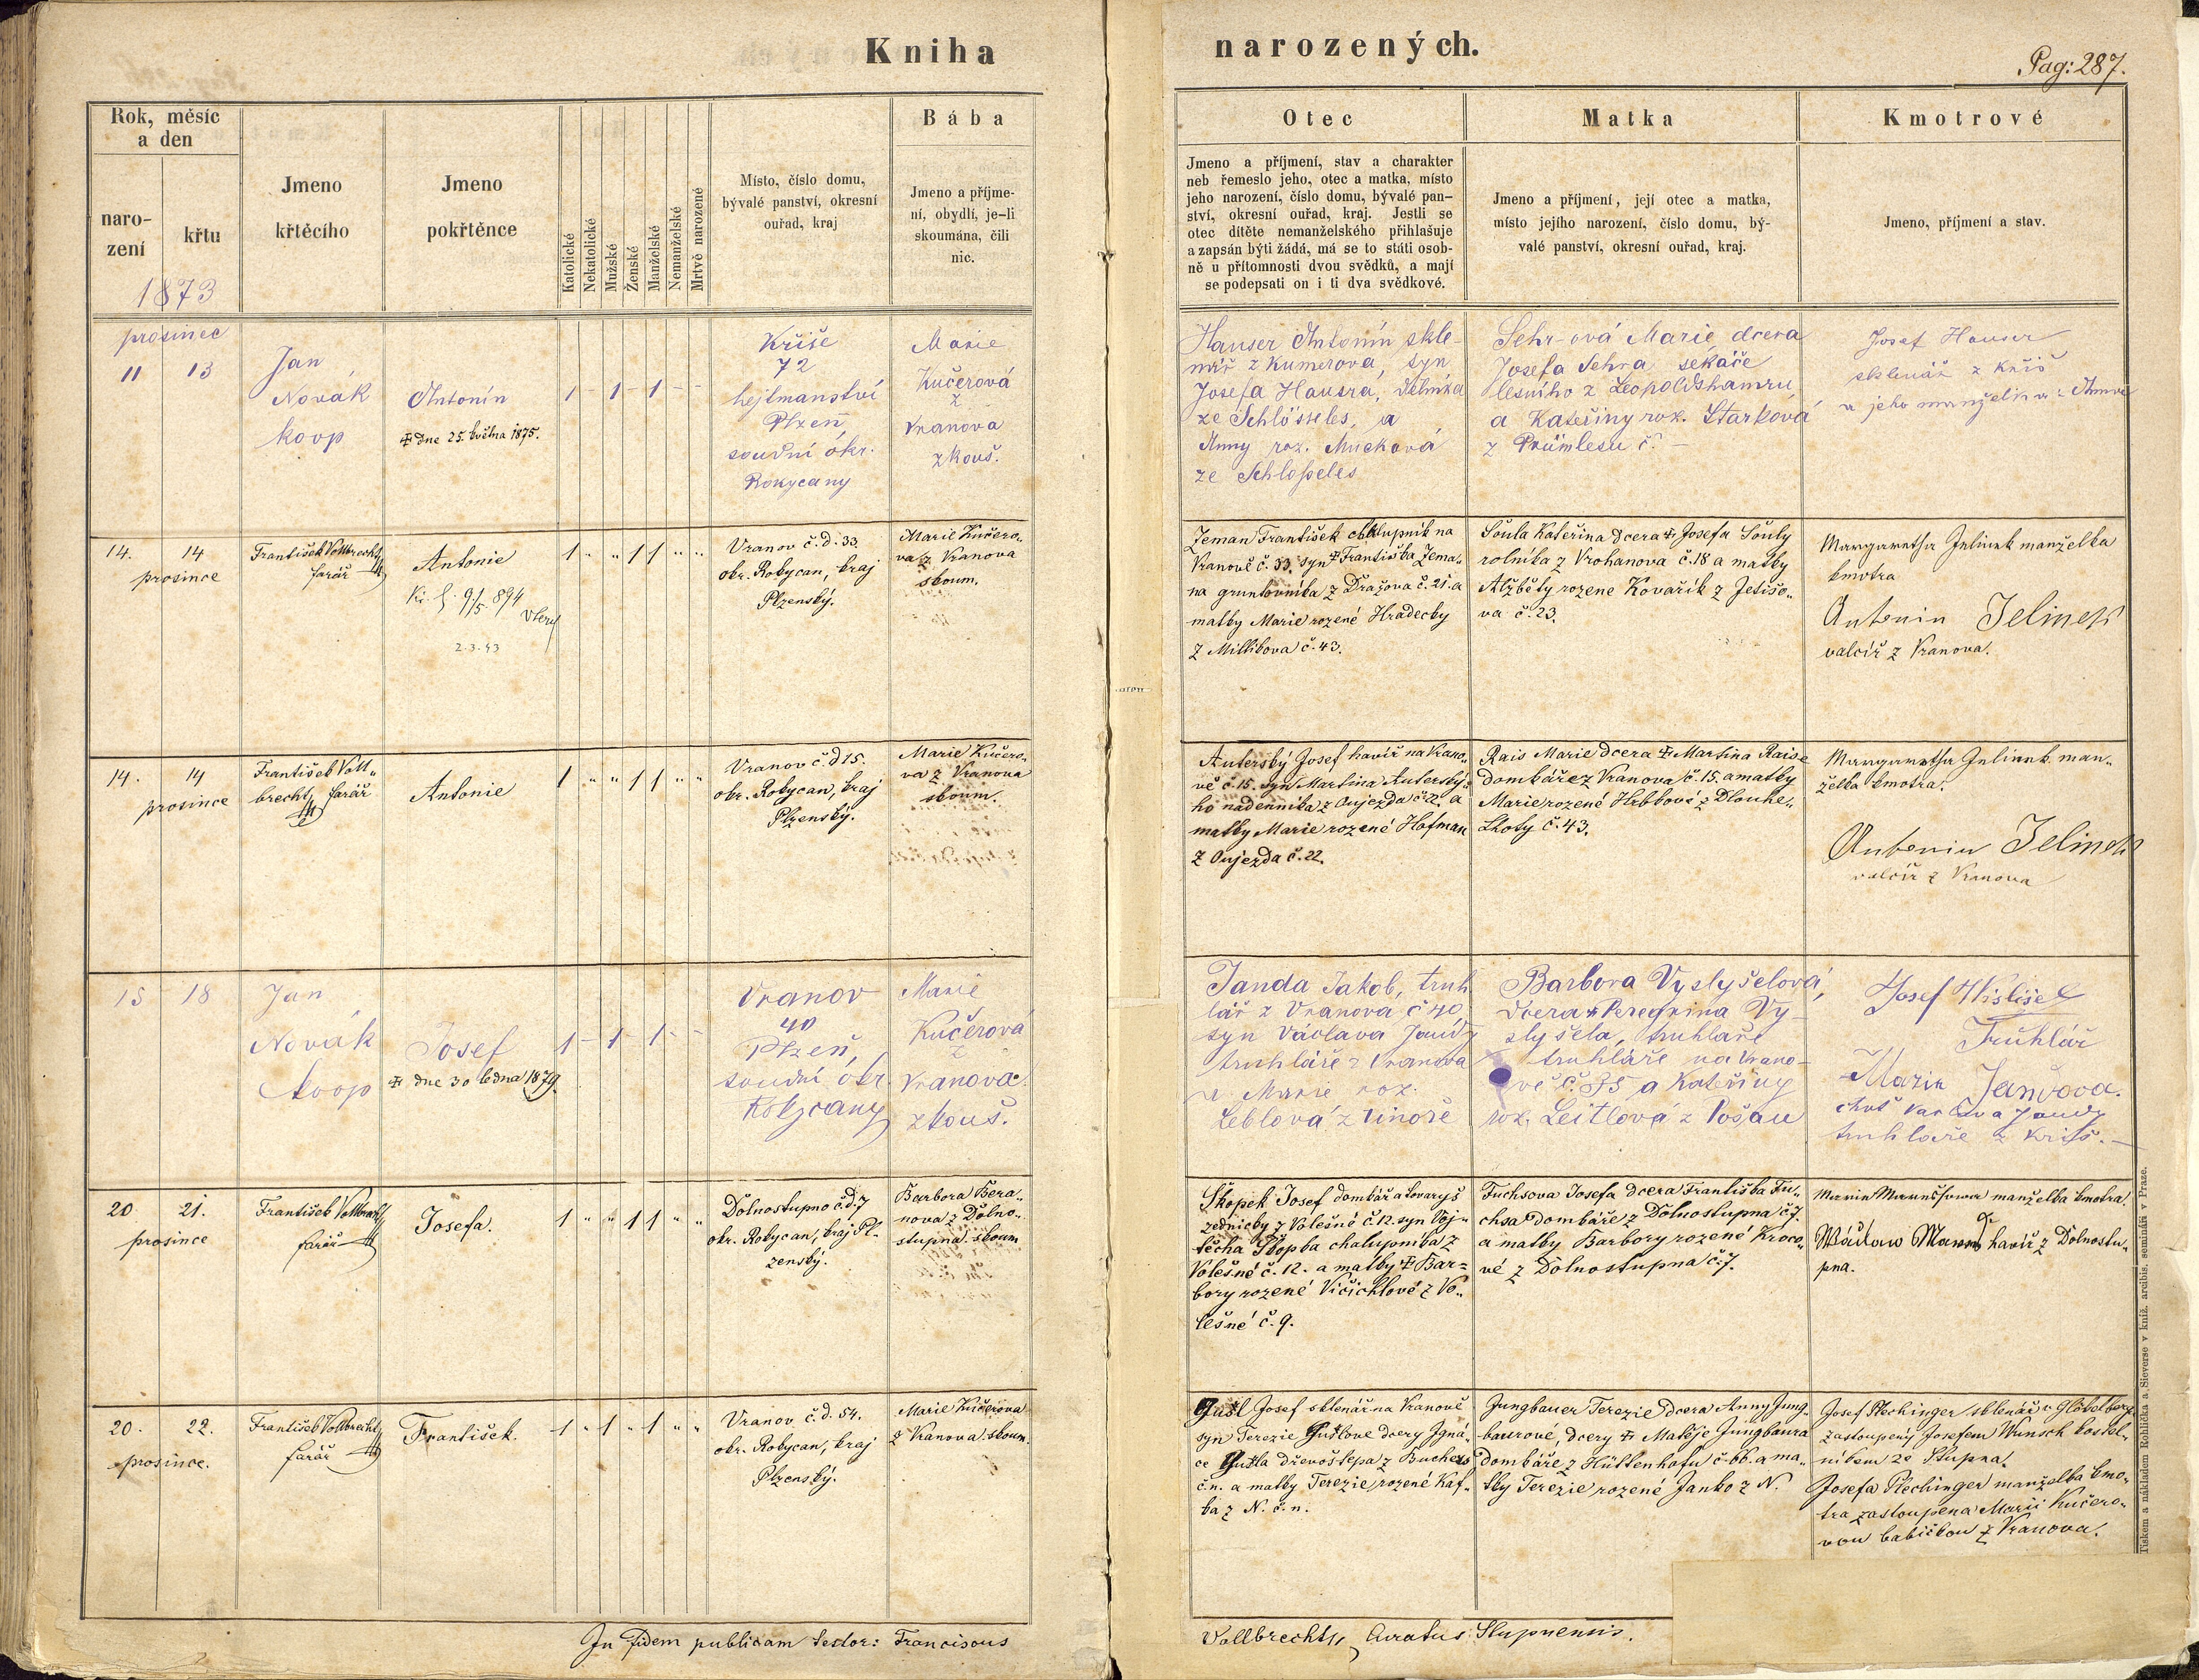 Kniha
narozených.
Pag: 287.
Rok, měsíc
a den
naro-
zení
křtu
1873
Jmeno
křtěcího
Jmeno
pokřtěnce
Katolické
Nekatolické
Mužské
Ženské
Manželské
Nemanželské
Mrtvě narozené
Místo, číslo domu,
bývalé panství, okresní
ouřad, kraj
Bába
Jmeno a příjme-
ní, obydlí, je-li
skoumána, čili
nic.
Otec
Jmeno a příjmení, stav a charakter
neb řemeslo jeho, otec a matka, místo
jeho narození, číslo domu, bývalé pan-
ství, okresní ouřad, kraj. Jestli se
otec dítěte nemanželského přihlašuje
a zapsán býti žádá, má se to státi osob-
ně u přítomnosti dvou svědků, a mají
se podepsati on i ti dva svědkové.
Matka
Jmeno a příjmení, její otec a matka,
místo jejího narození, číslo domu, bý-
valé panství, okresní ouřad, kraj.
Kmotrové
Jmeno, příjmení a stav.
prosinec
11 13
Jan
Novák
koop
Antonín
† dne 25. května 1875.
1 - 1 - 1 - -
Kříše
72
hejtmanství
Plzeň,
soudní okr.
Rokycany
Marie
Kučerová
z
Vranova
zkouš.
Hauser Antonín skle-
nář z Kumerova, syn
Josefa Hausra, dělníka
ze Schlösseles, a
Anny roz. Mucková
ze Schloßeles
Sehr-ová Marie, dcera
Josefa Sehra, sekáče
lesního z Leopoldshamru,
a Kateřiny roz. Starková
z č –
Josef Hauser
sklenář z Kříš
a jeho manželka Anna
14. 14
prosince
František Vollbrecht,
farář
Antonie
9/5 894
2.3.43
1 " " 1 1 " "
Vranov č.d. 33.
okr. Rokycan, kraj
Plzenský.
Marie Kučero-
va z Vranova
skoum.
Zeman František chalupník na
Vranově č. 33. syn † Františka Zema-
na gruntovníka z Dražova č. 21. a
matky Marie rozené Hradecky
z Milíkova č. 43.
Soula Kateřina dcera † Josefa Souly
rolníka z Vrohanova č. 18 a matky
Alžběty rozene Kovařík z Jetišo-
va č. 23.
Margaretha Jelinek manželka
kmotra
Antonin Jelinek
valcíř z Vranova.
14. 14
prosince
František Voll-
brecht, farář
Antonie
1 " " 1 1 " "
Vranov č.d 15.
okr. Rokycan, kraj
Plzenský.
Marie Kučero-
va z Vranova
skoum.
Auterský Josef havíř na Vrano-
vě č. 15. syn Martina Auterský-
ho nadenníka z Oujezda č 22. a
matky Marie rozené Hofman
z Oujezda č. 22.
Rais Marie dcera † Martina Raise
domkáře z Vranova č. 15. a matky
Marie rozené Hrbkové z Dlouhe-
Lhoty č. 43.
Margaretha Jelinek man-
želka kmotra.
Antonin Jelinek
valcíř z Vranova
15 18
Jan
Novák
koop
Josef
† dne 30 ledna 1879.
1 - 1 - 1 -
Vranov
40
Plzeň,
soudní okr.
Rokycany
Marie
Kučerová
z
Vranova.
zkouš.
Janda Jakob, truh
lář z Vranova č 40,
syn Václava Jandy
truhláře z Vranova
a Marie roz.
Leblová z
Barbora Vyslyšelová,
dcera † Peregrina Vy-
slyšela, truhlaře
truhláře na Vrano-
vě č. 35 a Kateřiny
roz. Leitlová z
Josef Wislišel
Truhlář
Marie Jandova.
choť Václava Jandy
truhlaře z Kříš. –
20 21.
prosince
František Vollbrecht,
farář
Josefa.
1 " " 1 1 " "
Dolnostupno č.d. 7
okr. Rokycan, kraj Pl-
zenský.
Barbora Bera-
nova z Dolno-
stupna. skoum
Škopek Josef domkář a tovaryš
zednický z Volešné č. 12. syn Voj-
těcha Škopka chalupníka z
Volešné č. 12. a matky † Bar-
bory rozené Vičichlové z Vo-
lešné č. 9.
Fuchsova Josefa dcera Františka Fu-
chsa domkáře z Dolnostupna č. 7.
a matky Barbory rozené Kroco-
vé z Dolnostupna č. 7.
Marie manželka kmotra.
havíř z Dolnostu-
pna.
20. 22.
prosince.
František Vollbrecht,
farář
František.
1 " 1 " 1 " "
Vranov č.d. 54.
okr. Rokycan, kraj
Plzenský.
Marie Kučerova
z Vranova. skoum.
Gušl Josef sklenář na Vranově
syn Terezie Gušlove dcery Igná-
ce Gušla dřevoštepa z Buchers
č.n. a matky Terezie rozené Kaf-
ka z N. č. n.
Jungbauer Terezie dcera Anny Jung-
baurové, dcery † Matěje Jungbaura
domkáře z Hüttenhofu č. 66. a ma-
tky Terezie rozené Janko z N.
Josef Plechinger sklenář v Glöbelberg
zastoupený Josefem Wunsch kostel-
níkem ze Stupna.
Josefa Plechinger manželka kmo-
tra zastoupena Marií Kučero-
vou babičkou z Vranova.
In fidem publicam testor: Franciscus
Vollbrecht, Curatus Stupnensis.
Tiskem a nákladem Rohlíčka a Sieverse v kníž. arcibis. semináři v Praze.